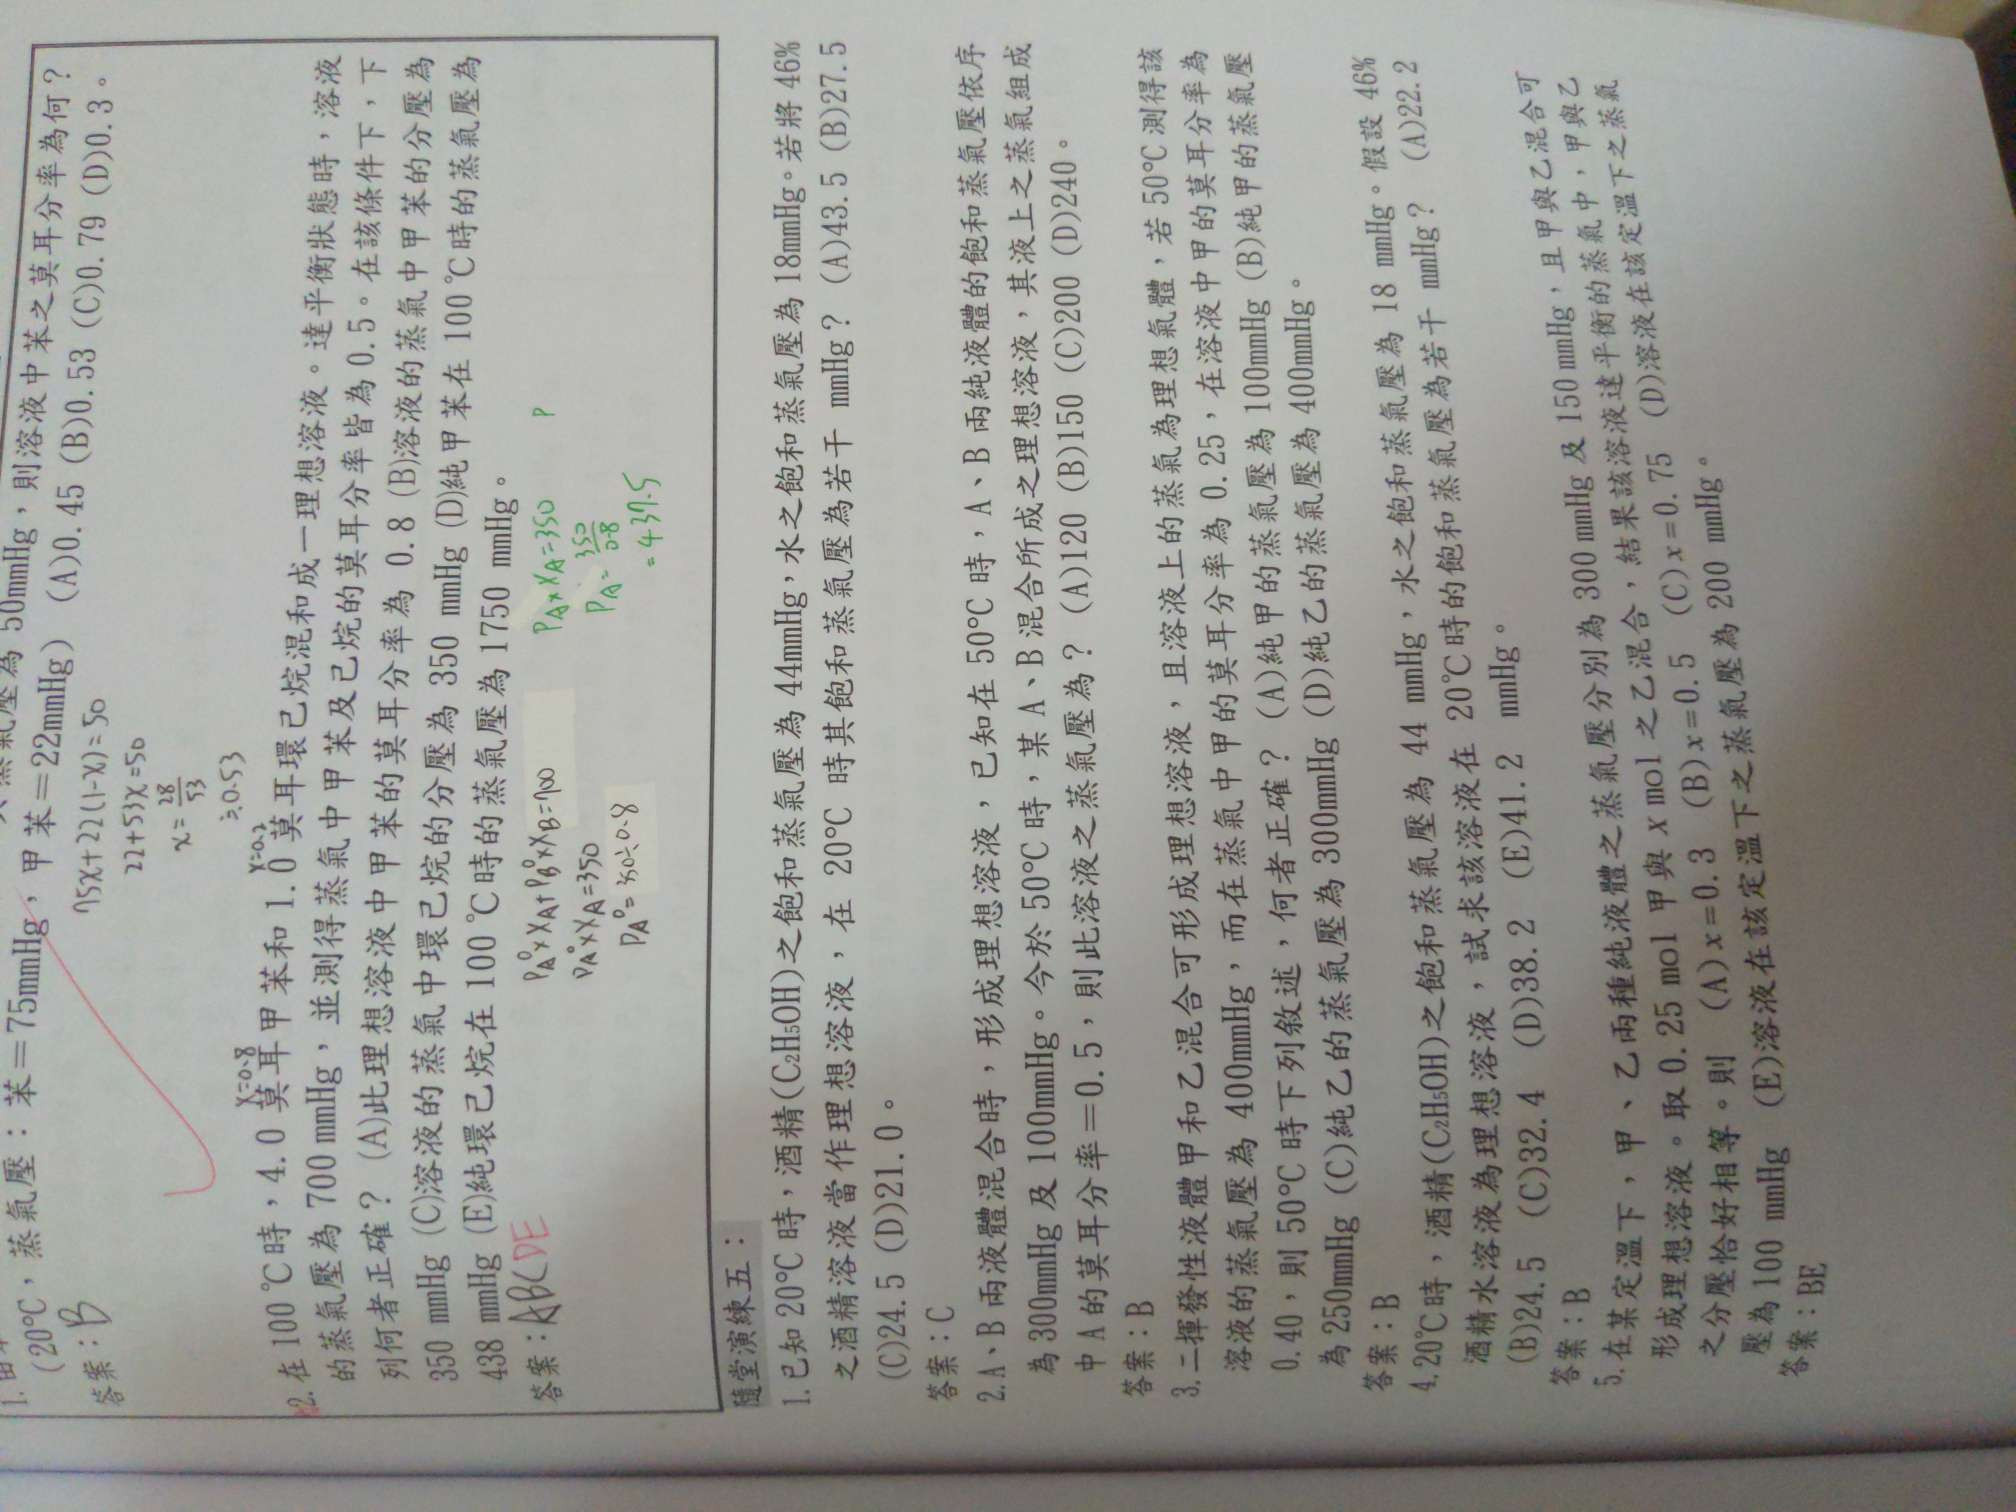 蒸氣壓為 50mmHg，則溶液中苯之莫耳分率為何？
(20℃，蒸氣壓：苯＝75mmHg，甲苯＝22mmHg) (A)0.45 (B)0.53 (C)0.79 (D)0.3。
答案：B
75x+22(1-x)=50
22+53x=50
x=28/53
≒0.53
x=0.8
x=0.2
2.在 100℃時，4.0 莫耳甲苯和 1.0 莫耳環己烷混和成一理想溶液。達平衡狀態時，溶液
的蒸氣壓為 700 mmHg，並測得蒸氣中甲苯及己烷的莫耳分率皆為 0.5。在該條件下，下
列何者正確？ (A)此理想溶液中甲苯的莫耳分率為 0.8 (B)溶液的蒸氣中甲苯的分壓為
350 mmHg (C)溶液的蒸氣中環己烷的分壓為 350 mmHg (D)純甲苯在 100℃時的蒸氣壓為
438 mmHg (E)純環己烷在 100℃時的蒸氣壓為 1750 mmHg。
答案：ABCDE
PA°×XA+PB°×XB=700
PA°×XA=350
PA°=350÷0.8
PA×XA=350
PA=350/0.8
=437.5
P
隨堂演練五：
1.已知 20℃時，酒精(C₂H₅OH)之飽和蒸氣壓為 44mmHg，水之飽和蒸氣壓為 18mmHg。若將 46%
之酒精溶液當作理想溶液，在 20℃ 時其飽和蒸氣壓為若干 mmHg？ (A)43.5 (B)27.5
(C)24.5 (D)21.0。
答案：C
2.A、B 兩液體混合時，形成理想溶液，已知在 50℃時，A、B 兩純液體的飽和蒸氣壓依序
為 300mmHg 及 100mmHg。今於 50℃時，某 A、B 混合所成之理想溶液，其液上之蒸氣組成
中 A 的莫耳分率＝0.5，則此溶液之蒸氣壓為？ (A)120 (B)150 (C)200 (D)240。
答案：B
3.二揮發性液體甲和乙混合可形成理想溶液，且溶液上的蒸氣為理想氣體，若 50℃測得該
溶液的蒸氣壓為 400mmHg，而在蒸氣中甲的莫耳分率為 0.25，在溶液中甲的莫耳分率為
0.40，則 50℃時下列敘述，何者正確？ (A)純甲的蒸氣壓為 100mmHg (B)純甲的蒸氣壓
為 250mmHg (C)純乙的蒸氣壓為 300mmHg (D)純乙的蒸氣壓為 400mmHg。
答案：B
4.20℃時，酒精(C₂H₅OH)之飽和蒸氣壓為 44 mmHg，水之飽和蒸氣壓為 18 mmHg。假設 46%
酒精水溶液為理想溶液，試求該溶液在 20℃時的飽和蒸氣壓為若干 mmHg？ (A)22.2
(B)24.5 (C)32.4 (D)38.2 (E)41.2 mmHg。
答案：B
5.在某定溫下，甲、乙兩種純液體之蒸氣壓分別為 300 mmHg 及 150 mmHg，且甲與乙混合可
形成理想溶液。取 0.25 mol 甲與 x mol 之乙混合，結果該溶液達平衡的蒸氣中，甲與乙
之分壓恰好相等。則 (A)x=0.3 (B)x=0.5 (C)x=0.75 (D)溶液在該定溫下之蒸氣
壓為 100 mmHg (E)溶液在該定溫下之蒸氣壓為 200 mmHg。
答案：BE